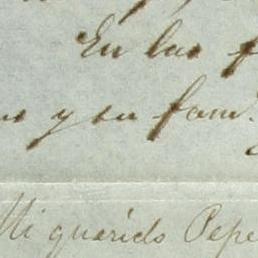 En las
y su fam.
Mi querido Pepe